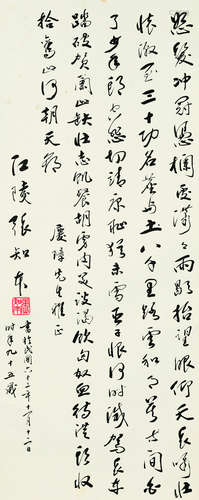 怒髮冲冠憑欄處瀟々雨歇抬望眼仰天長嘯壯
懷激烈三十功名塵與土八千里路雲和月莫等閒白
了少年頭空悲切靖康恥猶未雪臣子恨何時滅駕長車
踏破賀蘭山缺壯志飢餐胡虜肉笑談渴飲匈奴血待從頭收
拾舊山河朝天闕
先生雅正
江陵張知本
書於民國六十三年十一月十二日
時年九十五歲